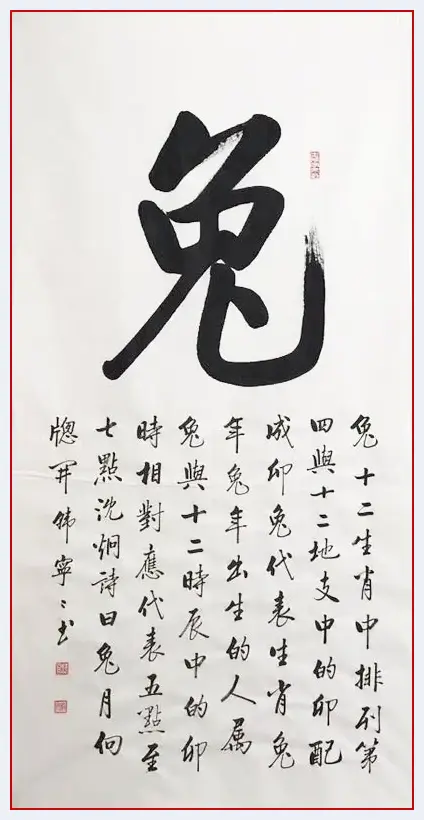 兔
兔十二生肖中排列第
四與十二地支中的卯配
成卯兔代表生肖兔
年兔年出生的人屬
兔與十二時辰中的卯
時相對應代表五點至
七點沈炯詩曰兔月向
牕開韩寧〻书